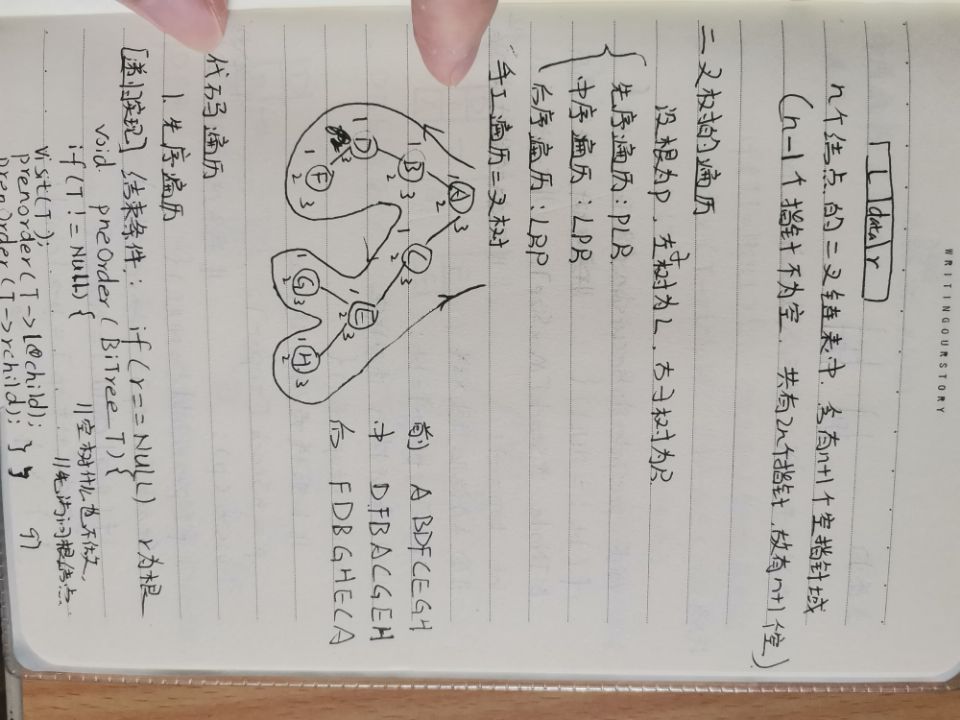 WRITINGOURSTORY
l data r
n个结点的二叉链表中,含有n+1个空指针域
(n-1个指针不为空,共有2n个指针,故有n+1个空)
二叉树的遍历
设根为P,左子树为L,右子树为R
先序遍历:PLR
中序遍历:LPR
后序遍历:LRP
手工遍历二叉树
A
B
C
D
E
F
G
H
前 ABDFCEGH
中 DFBACGEH
后 FDBGHECA
代码遍历
1. 先序遍历
[递归实现] 结束条件: if(r==NULL) r为根
void preOrder(BiTree T){
if(T!=Null){ //空树什么也不做,
visit(T); //先访问根结点....
preorder(T->lchild);
preorder(T->rchild); } }
97